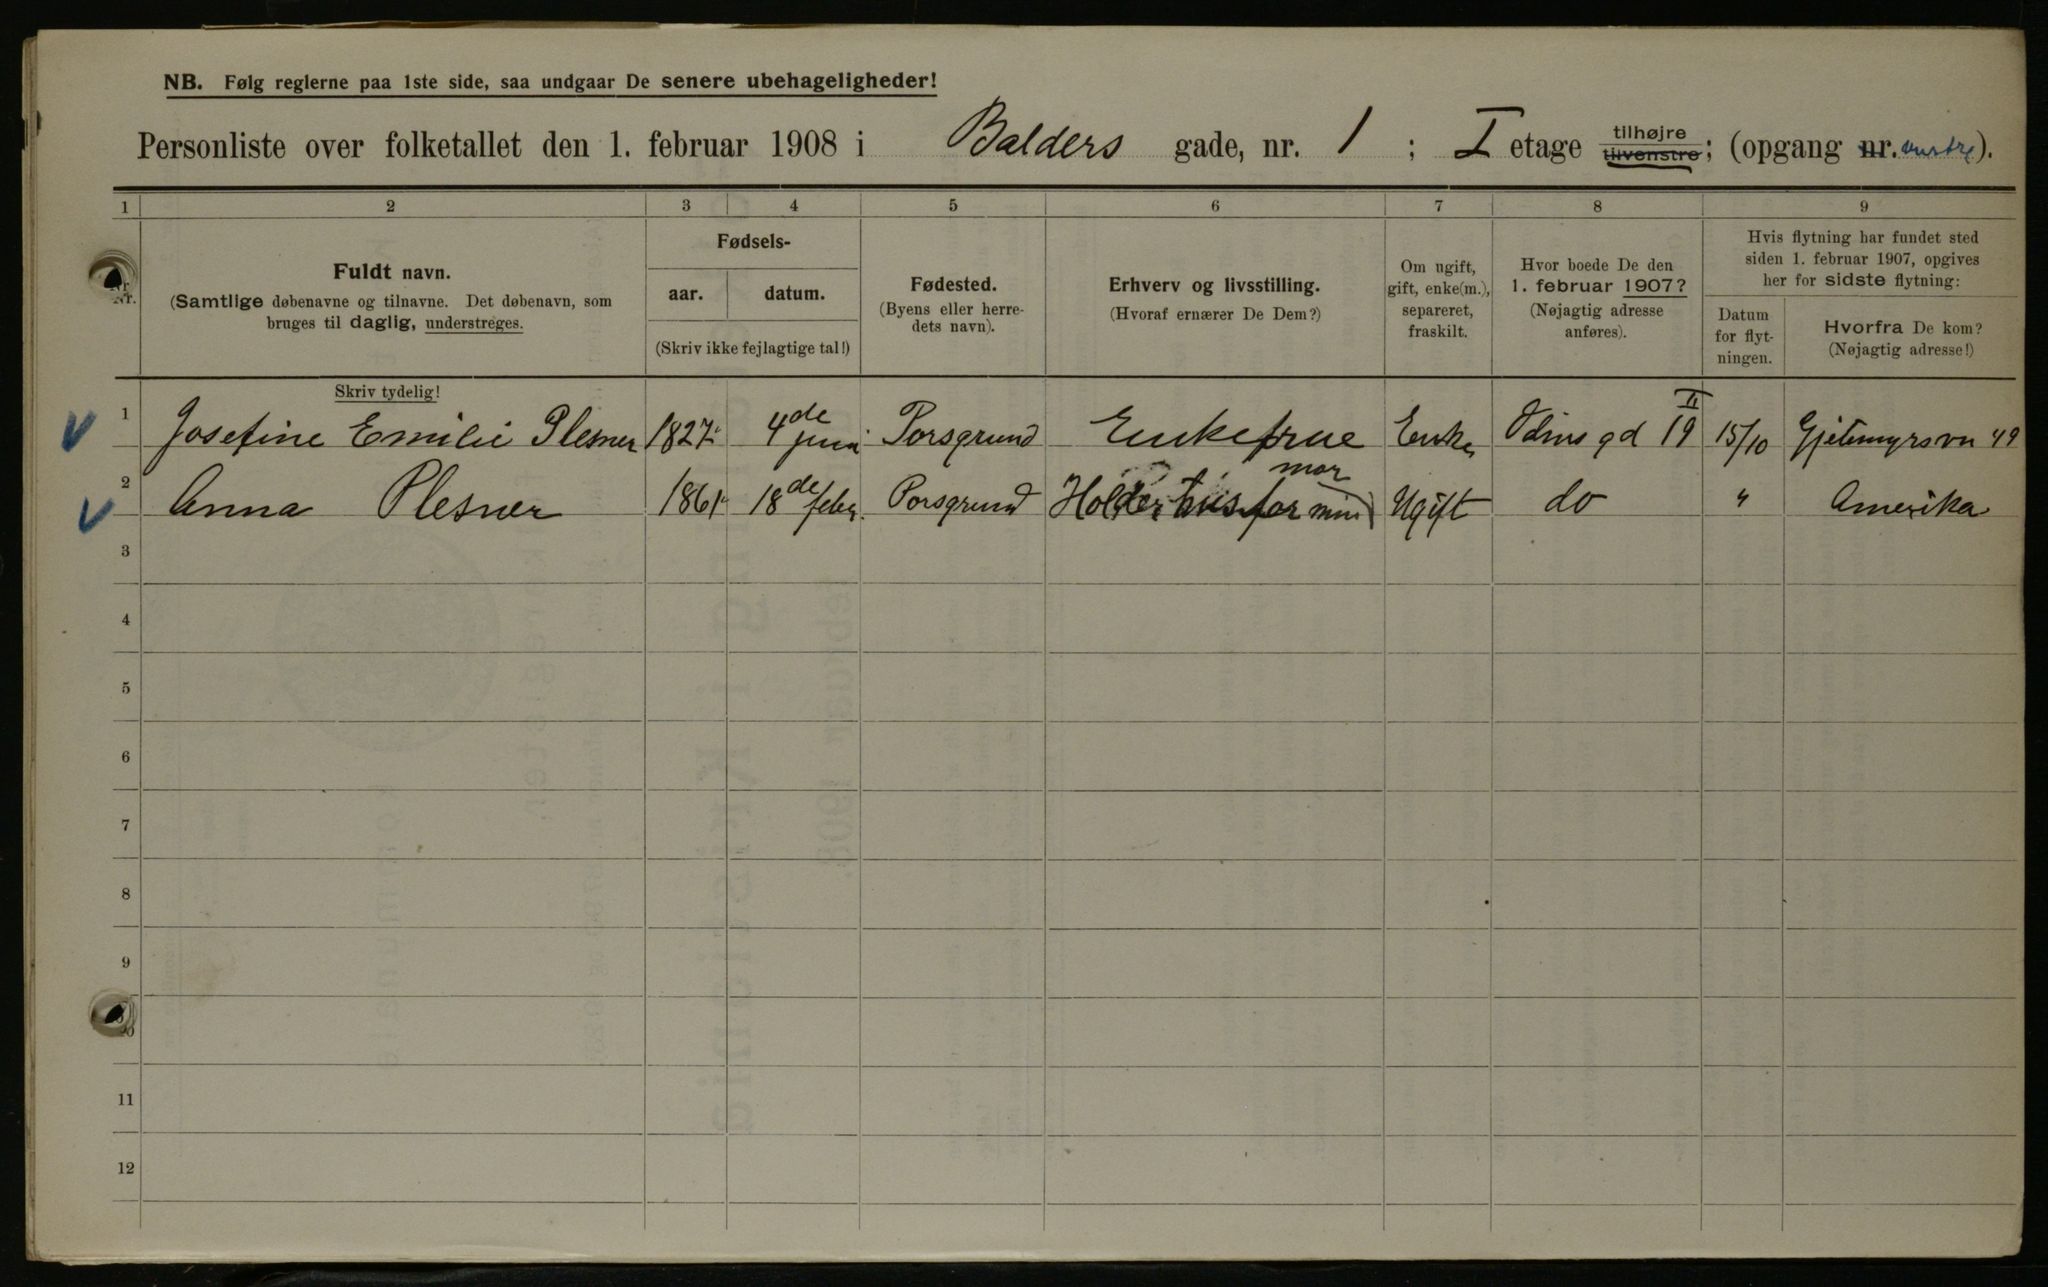 NB. Følg reglerne paa 1ste side, saa undgaar De senere ubehageligheder!
Personliste over folketallet den 1. februar 1908 i Balders gade, nr. 1; I etage tilhøjre tilvenstre; (opgang nr. venstre).
1 2 3 4 5 6 7 8 9
Nr.
Fuldt navn.
(Samtlige døbenavne og tilnavne. Det døbenavn, som
bruges til daglig, understreges.
Fødsels-
aar. datum.
(Skriv ikke fejlagtige tal!)
Fødested.
(Byens eller herre-
dets navn).
Erhverv og livsstilling.
(Hvoraf ernærer De Dem?)
Om ugift,
gift, enke(m.),
separeret,
fraskilt.
Hvor boede De den
1. februar 1907?
(Nøjagtig adresse
anføres).
Hvis flytning har fundet sted
siden 1. februar 1907, opgives
her for sidste flytning:
Datum
for flyt-
ningen.
Hvorfra De kom?
(Nøjagtig adresse!)
Skriv tydelig!
1 Josefine Emilie Plesner 1827 4de juni Porsgrund Enkefrue Enke Odins gd 19 II 15/10 Gjetemyrsvn 49
2 Anna Plesner 1861 18de febr. Porsgrund Holder hus for min mor Ugift do " Amerika
3
4
5
6
7
8
9
10
11
12